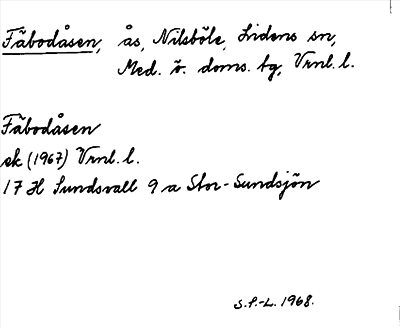 Fäbodåsen, ås, Nilsböle, Lidens sn,
Med. ö. doms. tg, Vrnl. l.
Fäbodåsen
ek (1967) Vrnl. l.
17 H Sundsvall 9 a Stor-Sundsjön
S.P.-L. 1968.